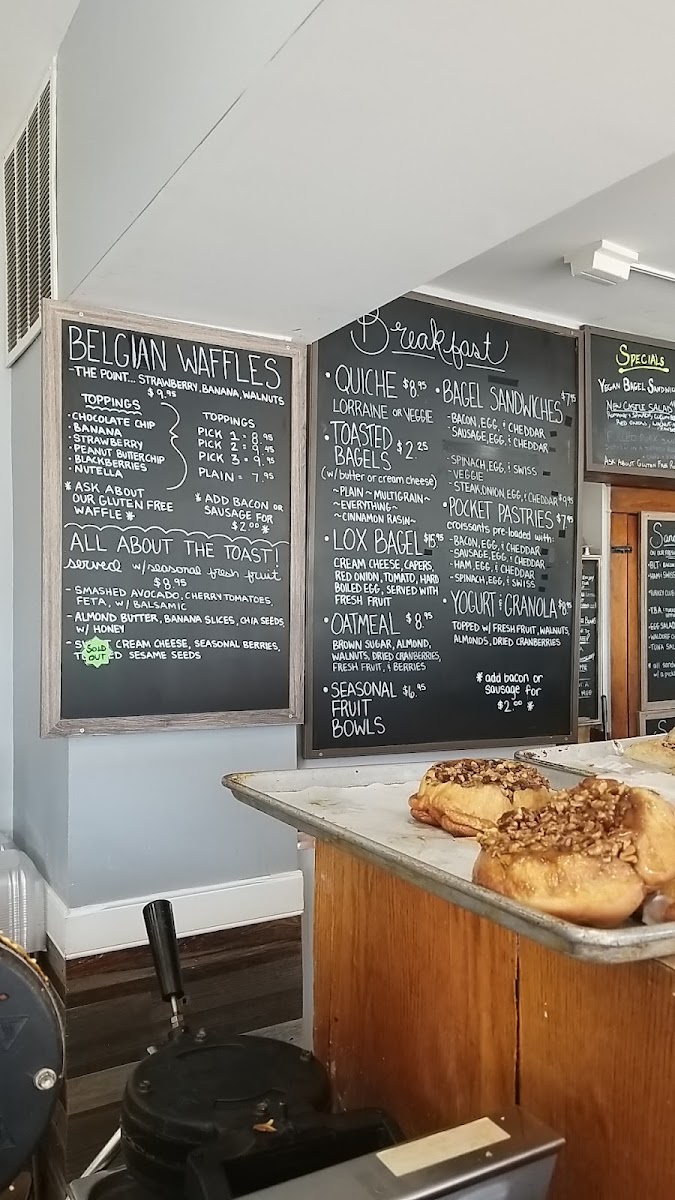 BELGIAN WAFFLES
-THE POINT... STRAWBERRY, BANANA, WALNUTS
$9.95
TOPPINGS
•CHOCOLATE CHIP
•BANANA
•STRAWBERRY
•PEANUT BUTTER CHIP
•BLACKBERRIES
•NUTELLA
TOPPINGS
PICK 1 = 8.95
PICK 2 = 9.95
PICK 3 = 9.95
PLAIN = 7.95
*ASK ABOUT
OUR GLUTEN FREE
WAFFLE*
*ADD BACON OR
SAUSAGE FOR
$2.00*
ALL ABOUT THE TOAST!
served w/seasonal fresh fruit
$8.95
- SMASHED AVOCADO, CHERRY TOMATOES,
FETA, W/ BALSAMIC
- ALMOND BUTTER, BANANA SLICES, CHIA SEEDS,
W/ HONEY
CREAM CHEESE, SEASONAL BERRIES,
SESAME SEEDS
SOLD
OUT
Breakfast
•QUICHE $8.95
LORRAINE OR VEGGIE
•TOASTED
BAGELS $2.25
(w/ butter or cream cheese)
~PLAIN~MULTIGRAIN~
~EVERYTHING~
~CINNAMON RASIN~
•LOX BAGEL $15.95
CREAM CHEESE, CAPERS,
RED ONION, TOMATO, HARD
BOILED EGG, SERVED WITH
FRESH FRUIT
•OATMEAL $8.95
BROWN SUGAR, ALMOND,
WALNUTS, DRIED CRANBERRIES,
FRESH FRUIT, & BERRIES
•SEASONAL $6.95
FRUIT
BOWLS
•BAGEL SANDWICHES $7.95
-BACON, EGG, & CHEDDAR
-SAUSAGE, EGG, & CHEDDAR
-SPINACH, EGG, & SWISS
-VEGGIE
-STEAK, ONION, EGG, & CHEDDAR $9.95
•POCKET PASTRIES $7.95
croissants pre-loaded with:
-BACON, EGG, & CHEDDAR
-SAUSAGE, EGG, & CHEDDAR
-HAM, EGG, & CHEDDAR
-SPINACH, EGG, & SWISS
•YOGURT & GRANOLA $8.95
TOPPED W/ FRESH FRUIT, WALNUTS,
ALMONDS, DRIED CRANBERRIES
*add bacon or
sausage for
$2.00 *
SPECIALS
VEGAN BAGEL SANDWIC
NEW CASTLE SALAD
ASK ABOUT GLUTEN FREE